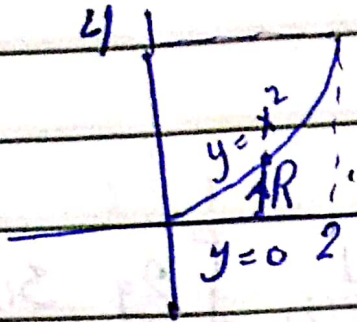 4
y=x²
R
y=0 2